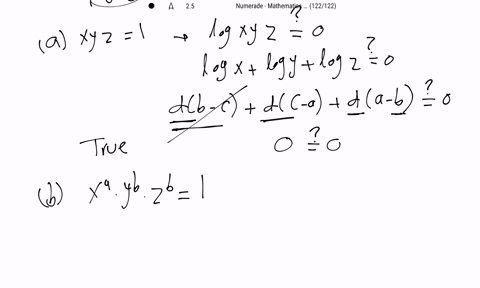 Δ 2.5 Numerade - Mathematics ... (122/122)
(a) xyz = 1 → log xyz ?= 0
log x + log y + log z ?= 0
d(b-c) + d(c-a) + d(a-b) ?= 0
True 0 ?= 0
(b) x^a · y^b · z^b = 1